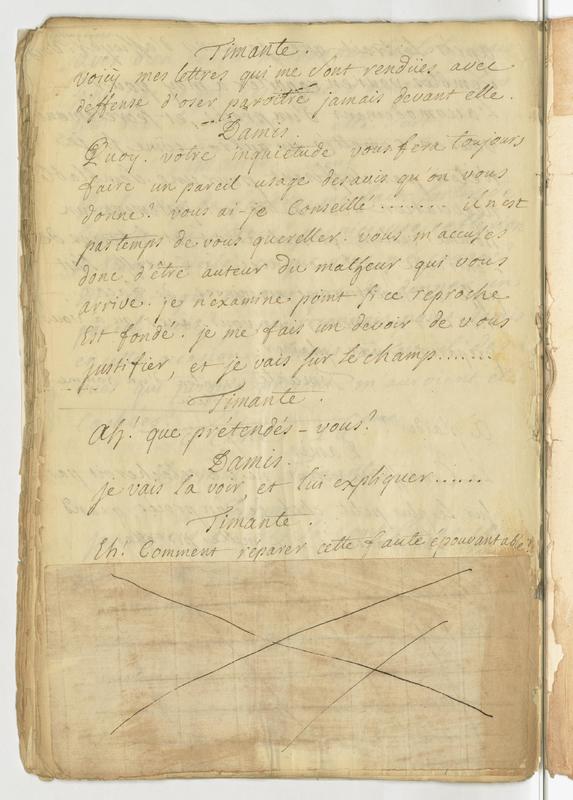 Timante.
voicÿ mes lettres qui me sont rendües avec
déffense d'oser paroitre jamais devant elle.
Damis.
Quoy. vôtre inquietude vous fera toujours
faire un pareil usage des avis qu'on vous
donne? vous ai-je Conseillé ....... il n'est
pas temps de vous quereller. vous m'accusés
donc d'être auteur du malheur qui vous
arrive. je n'examine point si ce reproche
Est fondé. je me fais un devoir de vous
justifier, et je vais sur le champ......
Timante.
Ah! que prétendés-vous?
Damis.
je vais la voir, et lui expliquer......
Timante.
Eh! Comment réparer cette faute épouvantable?